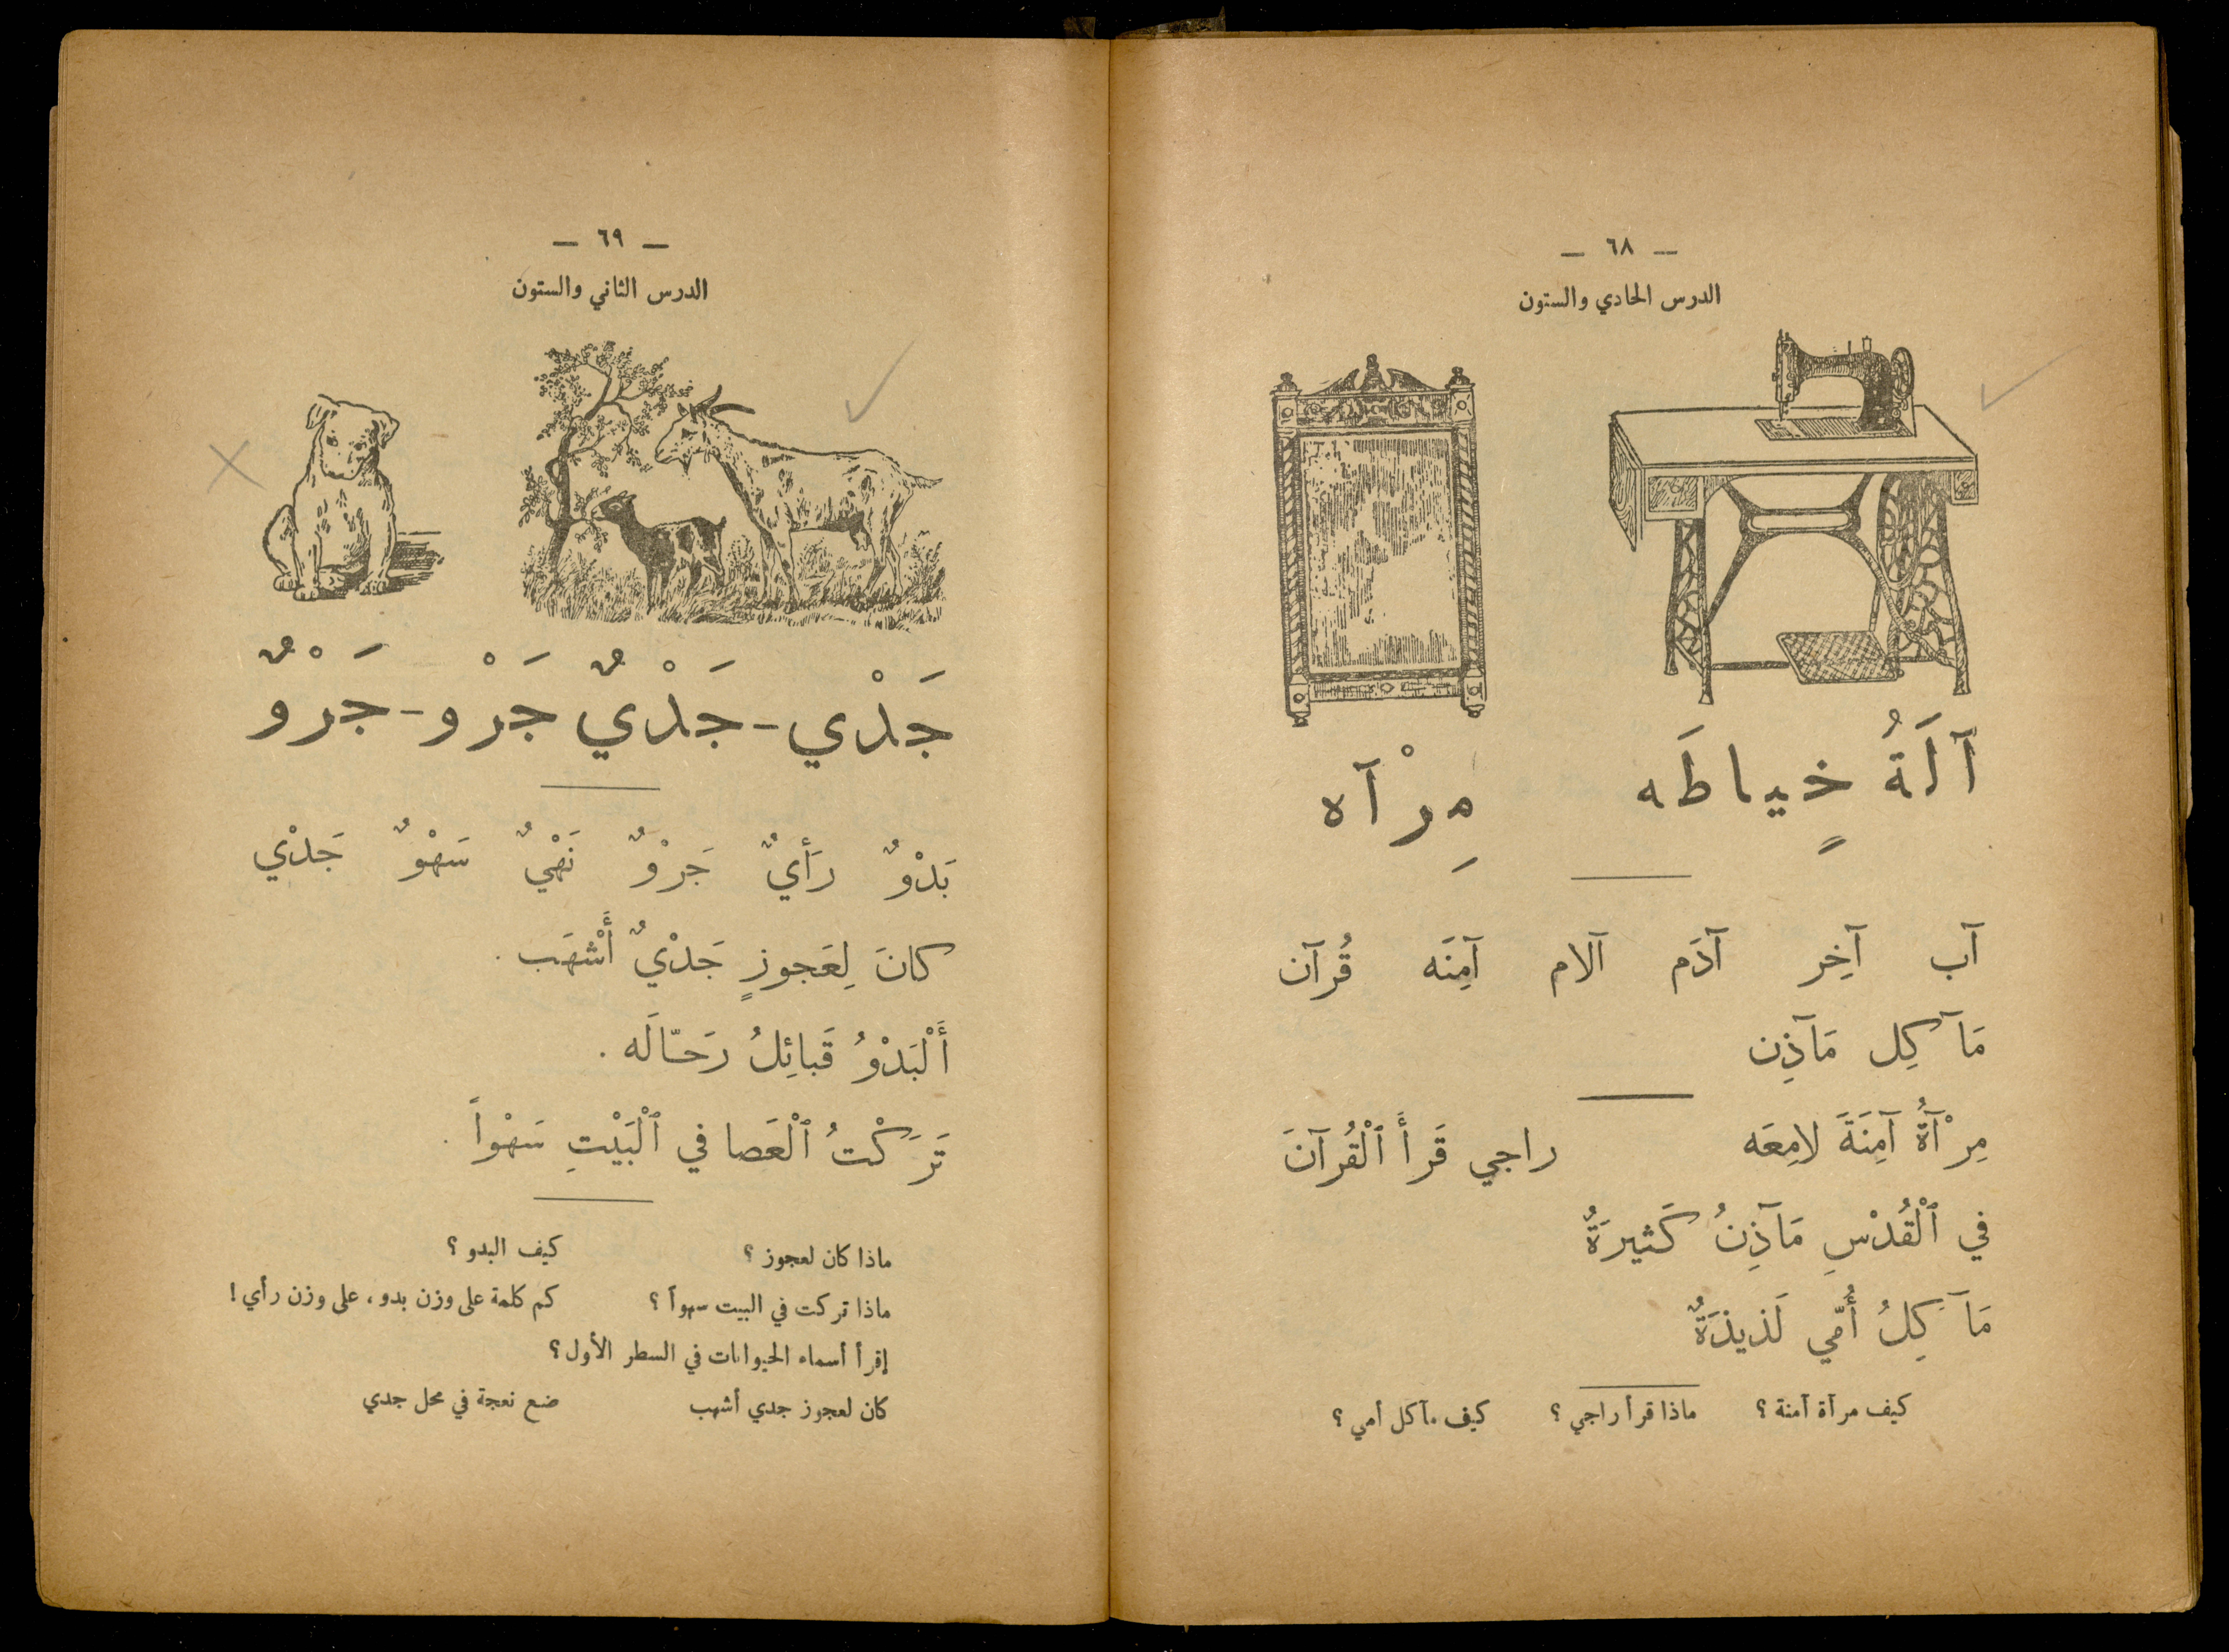 — ٦٨ —
الدرس الحادي والستون
آلَةُ خٍياطَه
مِرْآه
آب آخِر آدَم آلام آمِنَه قُرآن
مَآكِل مَآذِن
مِرْآةُ آمِنَةَ لامِعَه راجي قَرأَ ٱلْقُرآنَ
في ٱلْقُدْسِ مَآذِنُ كَثيرَةٌ
مَآكِلُ أُمّي لَذيذَةٌ
كيف مرآة آمنة ؟ ماذا قرأ راجي ؟ كيف مآكل أمي ؟
— ٦٩ —
الدرس الثاني والستون
جَدْي - جَدْيٌ جَرْو - جَرْوٌ
بَدْوٌ رَأيٌ جَرْوٌ نَهْيٌ سَهْوٌ جَدْي
كانَ لِعَجوزٍ جَدْيٌ أَشْهَب .
أَلْبَدْوُ قَبائِلُ رَحّالَه .
تَرَكْتُ ٱلْعَصا في ٱلْبَيْتِ سَهْواً .
ماذا كان لعجوز ؟ كيف البدو ؟
ماذا تركت في البيت سهواً ؟ كم كلمة على وزن بدو ، على وزن رأي !
إقرأ أسماء الحيوانات في السطر الأول ؟
كان لعجوز جدي أشهب ضع نعجة في محل جدي